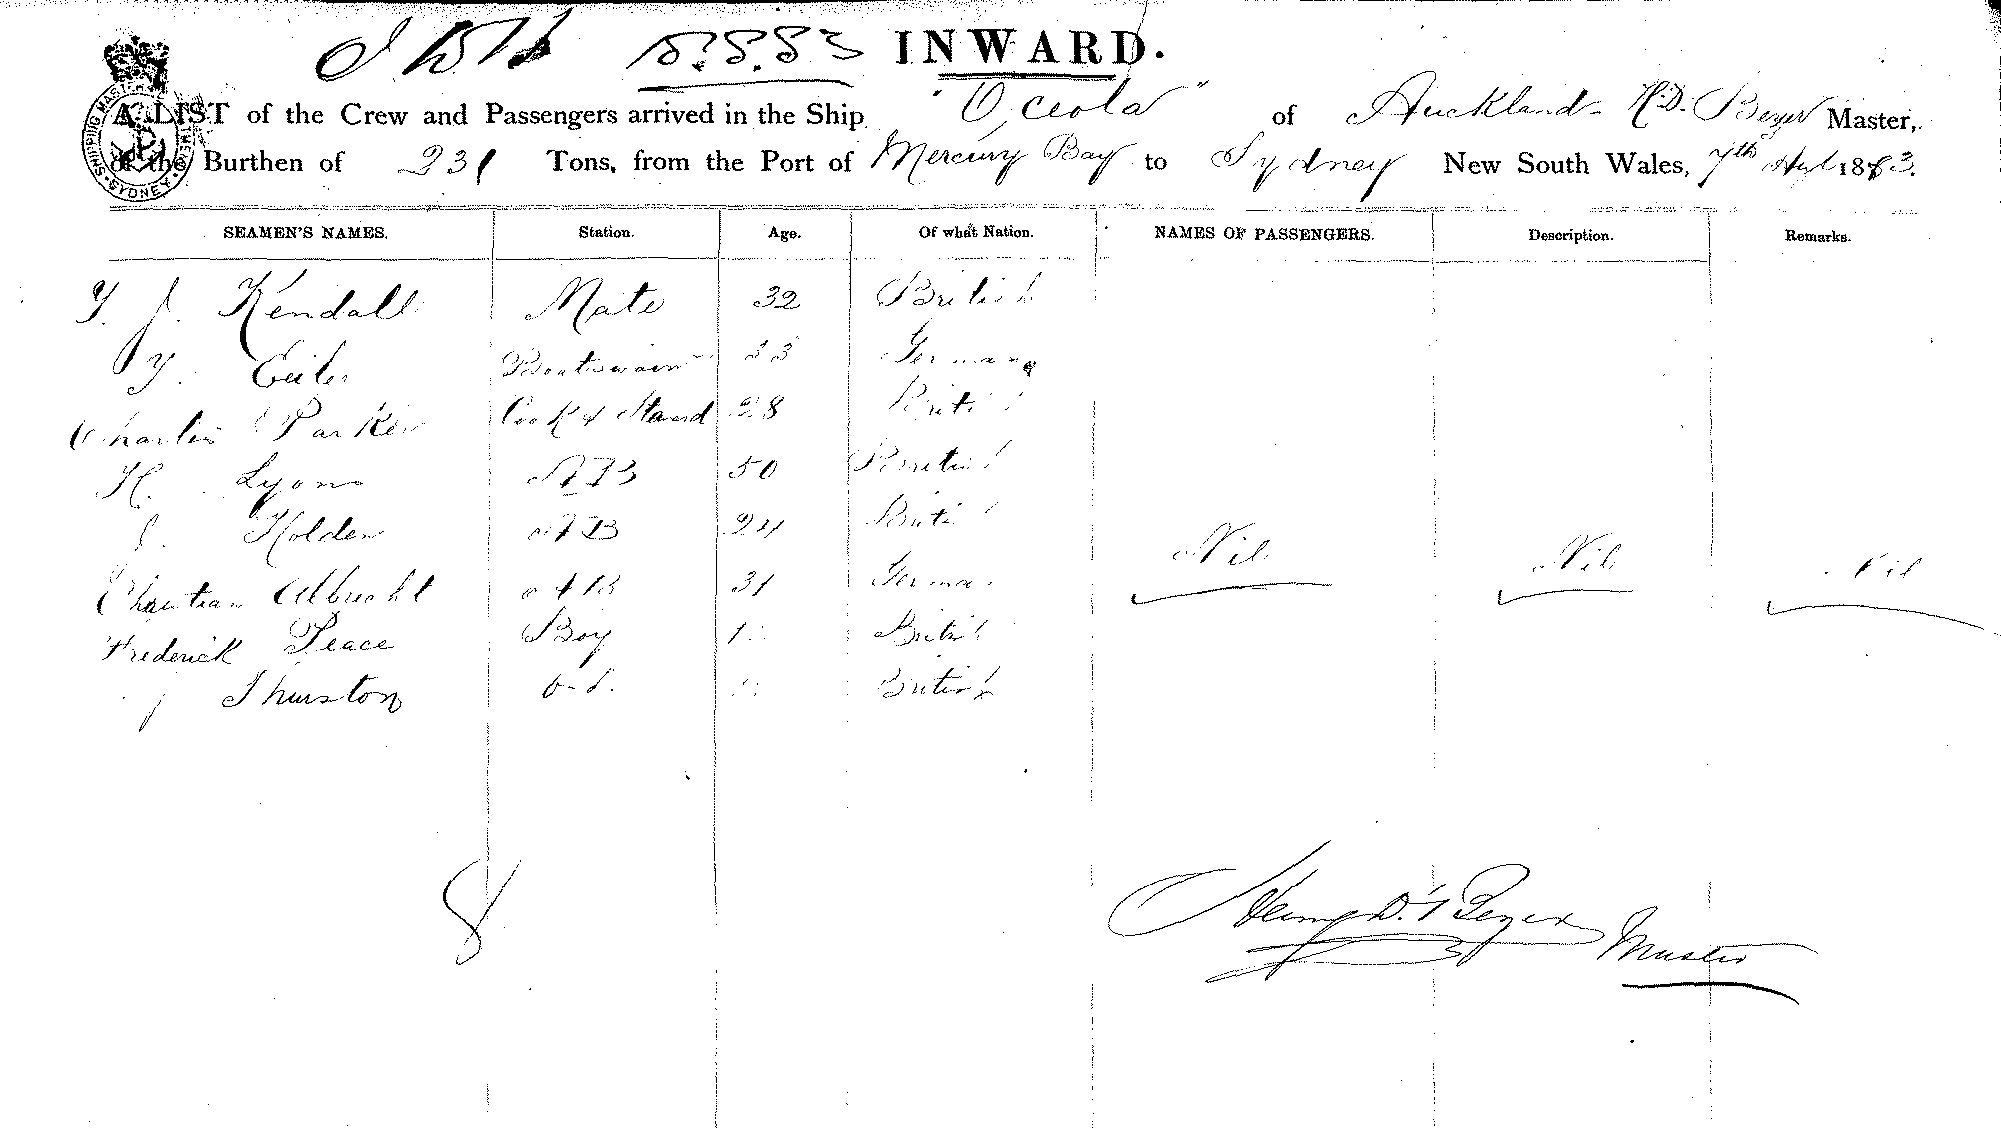 8.8.83 INWARD.
A LIST of the Crew and Passengers arrived in the Ship "Oceola" of Auckland H.D. Beyer Master,
of the Burthen of 231 Tons, from the Port of Mercury Bay to Sydney New South Wales, 7th 1883.
SHIPPING MASTER'S SYDNEY
SEAMEN'S NAMES. Station. Age. Of what Nation. NAMES OF PASSENGERS. Description. Remarks.
Kendall Mate 32 British
Boatswain 33 German
Charles Parker Cook & Steward 28 British
H. Lyons AB 50 British
J. Holden AB 24 British
Nil Nil Nil
Christian Albrecht AB 31 German
Frederick Peace Boy British
J Thurston British
8
Henry D. Beyer Master